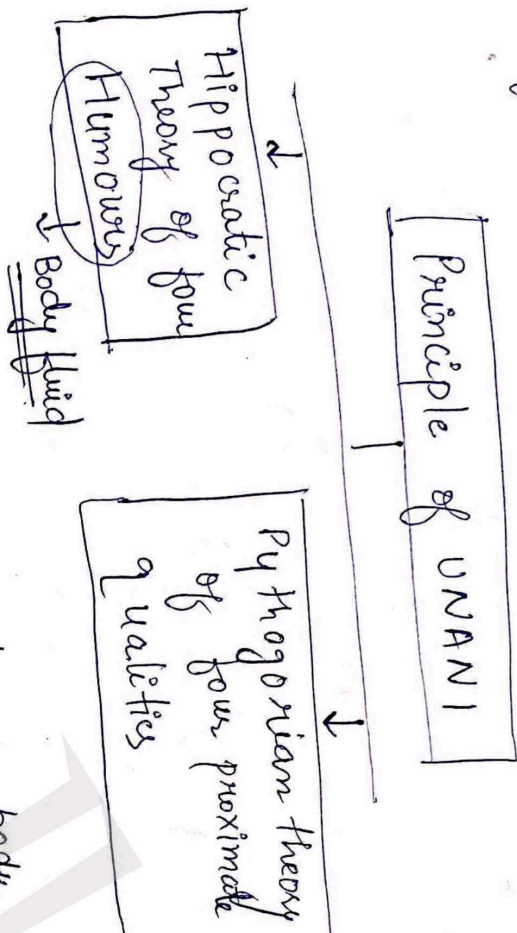 Principle of UNANI
Hippocratic
Theory of four
Humours
↓ Body fluid
Pythogorian theory
of four proximate
qualities
body